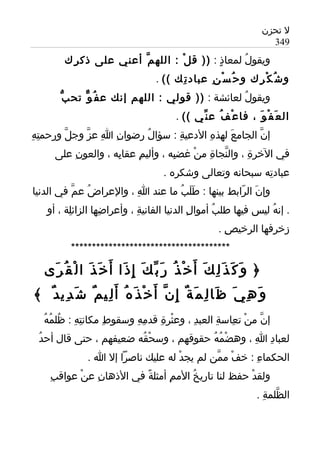 لا تحزن
349
ويقولُ لمعاذٍ : (( قلْ : اللهمَّ أعني على ذكرك
وشُكْرِك وحُسْنِ عبادتِك )) .
ويقولُ لعائشة : (( قولي : اللهم إنك عفُوٌّ تحبُّ
العَفْوَ ، فاعْفُ عنِّي )) .
إنَّ الجامعَ لهذهِ الأدعيةِ : سؤالُ رضوانِ اللهِ عزَّ وجلَّ ورحمتِهِ
في الآخرةِ ، والنَّجاةِ منْ غضبِه ، وأليمِ عقابِه ، والعونِ على
عبادتِه سبحانه وتعالى وشكرِه .
وإن الرّابط بينها : طَلَبُ ما عند اللهِ ، والإعراضُ عمَّ في الدنيا
. إنه ليس فيها طلبُ أموالِ الدنيا الفانيةِ ، وأعراضِها الزائلِة ، أو
زخرفِها الرخيصِ .
**************************************
﴿ وَكَذَلِكَ أَخْذُ رَبِّكَ إِذَا أَخَذَ الْقُرَى
وَهِيَ ظَالِمَةٌ إِنَّ أَخْذَهُ أَلِيمٌ شَدِيدٌ ﴾
إنَّ منْ تعاسةِ العبدِ ، وعثْرةِ قدمِهِ وسقوطِ مكانتِهِ : ظُلمُهُ
لعبادِ اللهِ ، وهضْمُهُ حقوقهم ، وسحْقُه ضعيفهم ، حتى قال أحدُ
الحكماءِ : خفْ ممَّن لم يجدْ له عليك ناصرًا إلا الله .
ولقدْ حفظ لنا تاريخُ الأمم أمثلةً في الأذهانِ عنْ عواقبِ
الظَّلمةِ .